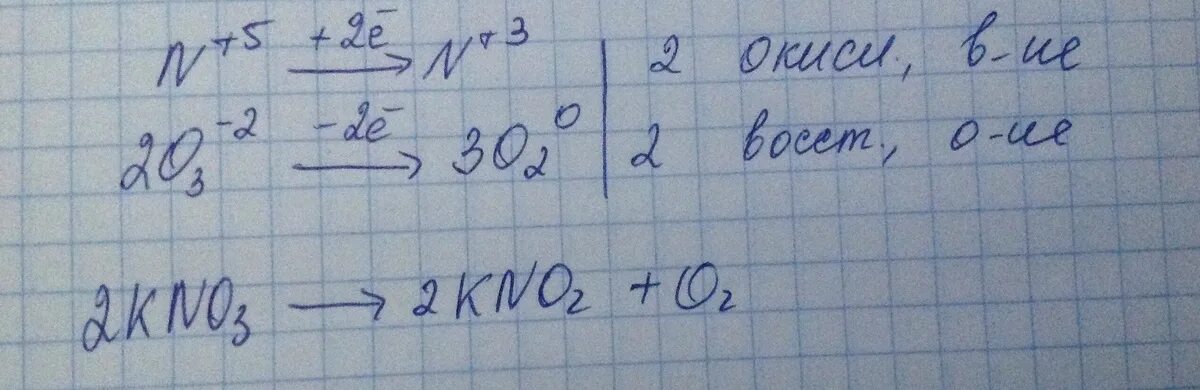 N⁺⁵ +2ē → N⁺³ | 2 окисл., в-ие
2O₃⁻² -2ē → 3O₂⁰ | 2 восст., о-ие
2KNO₃ → 2KNO₂ + O₂